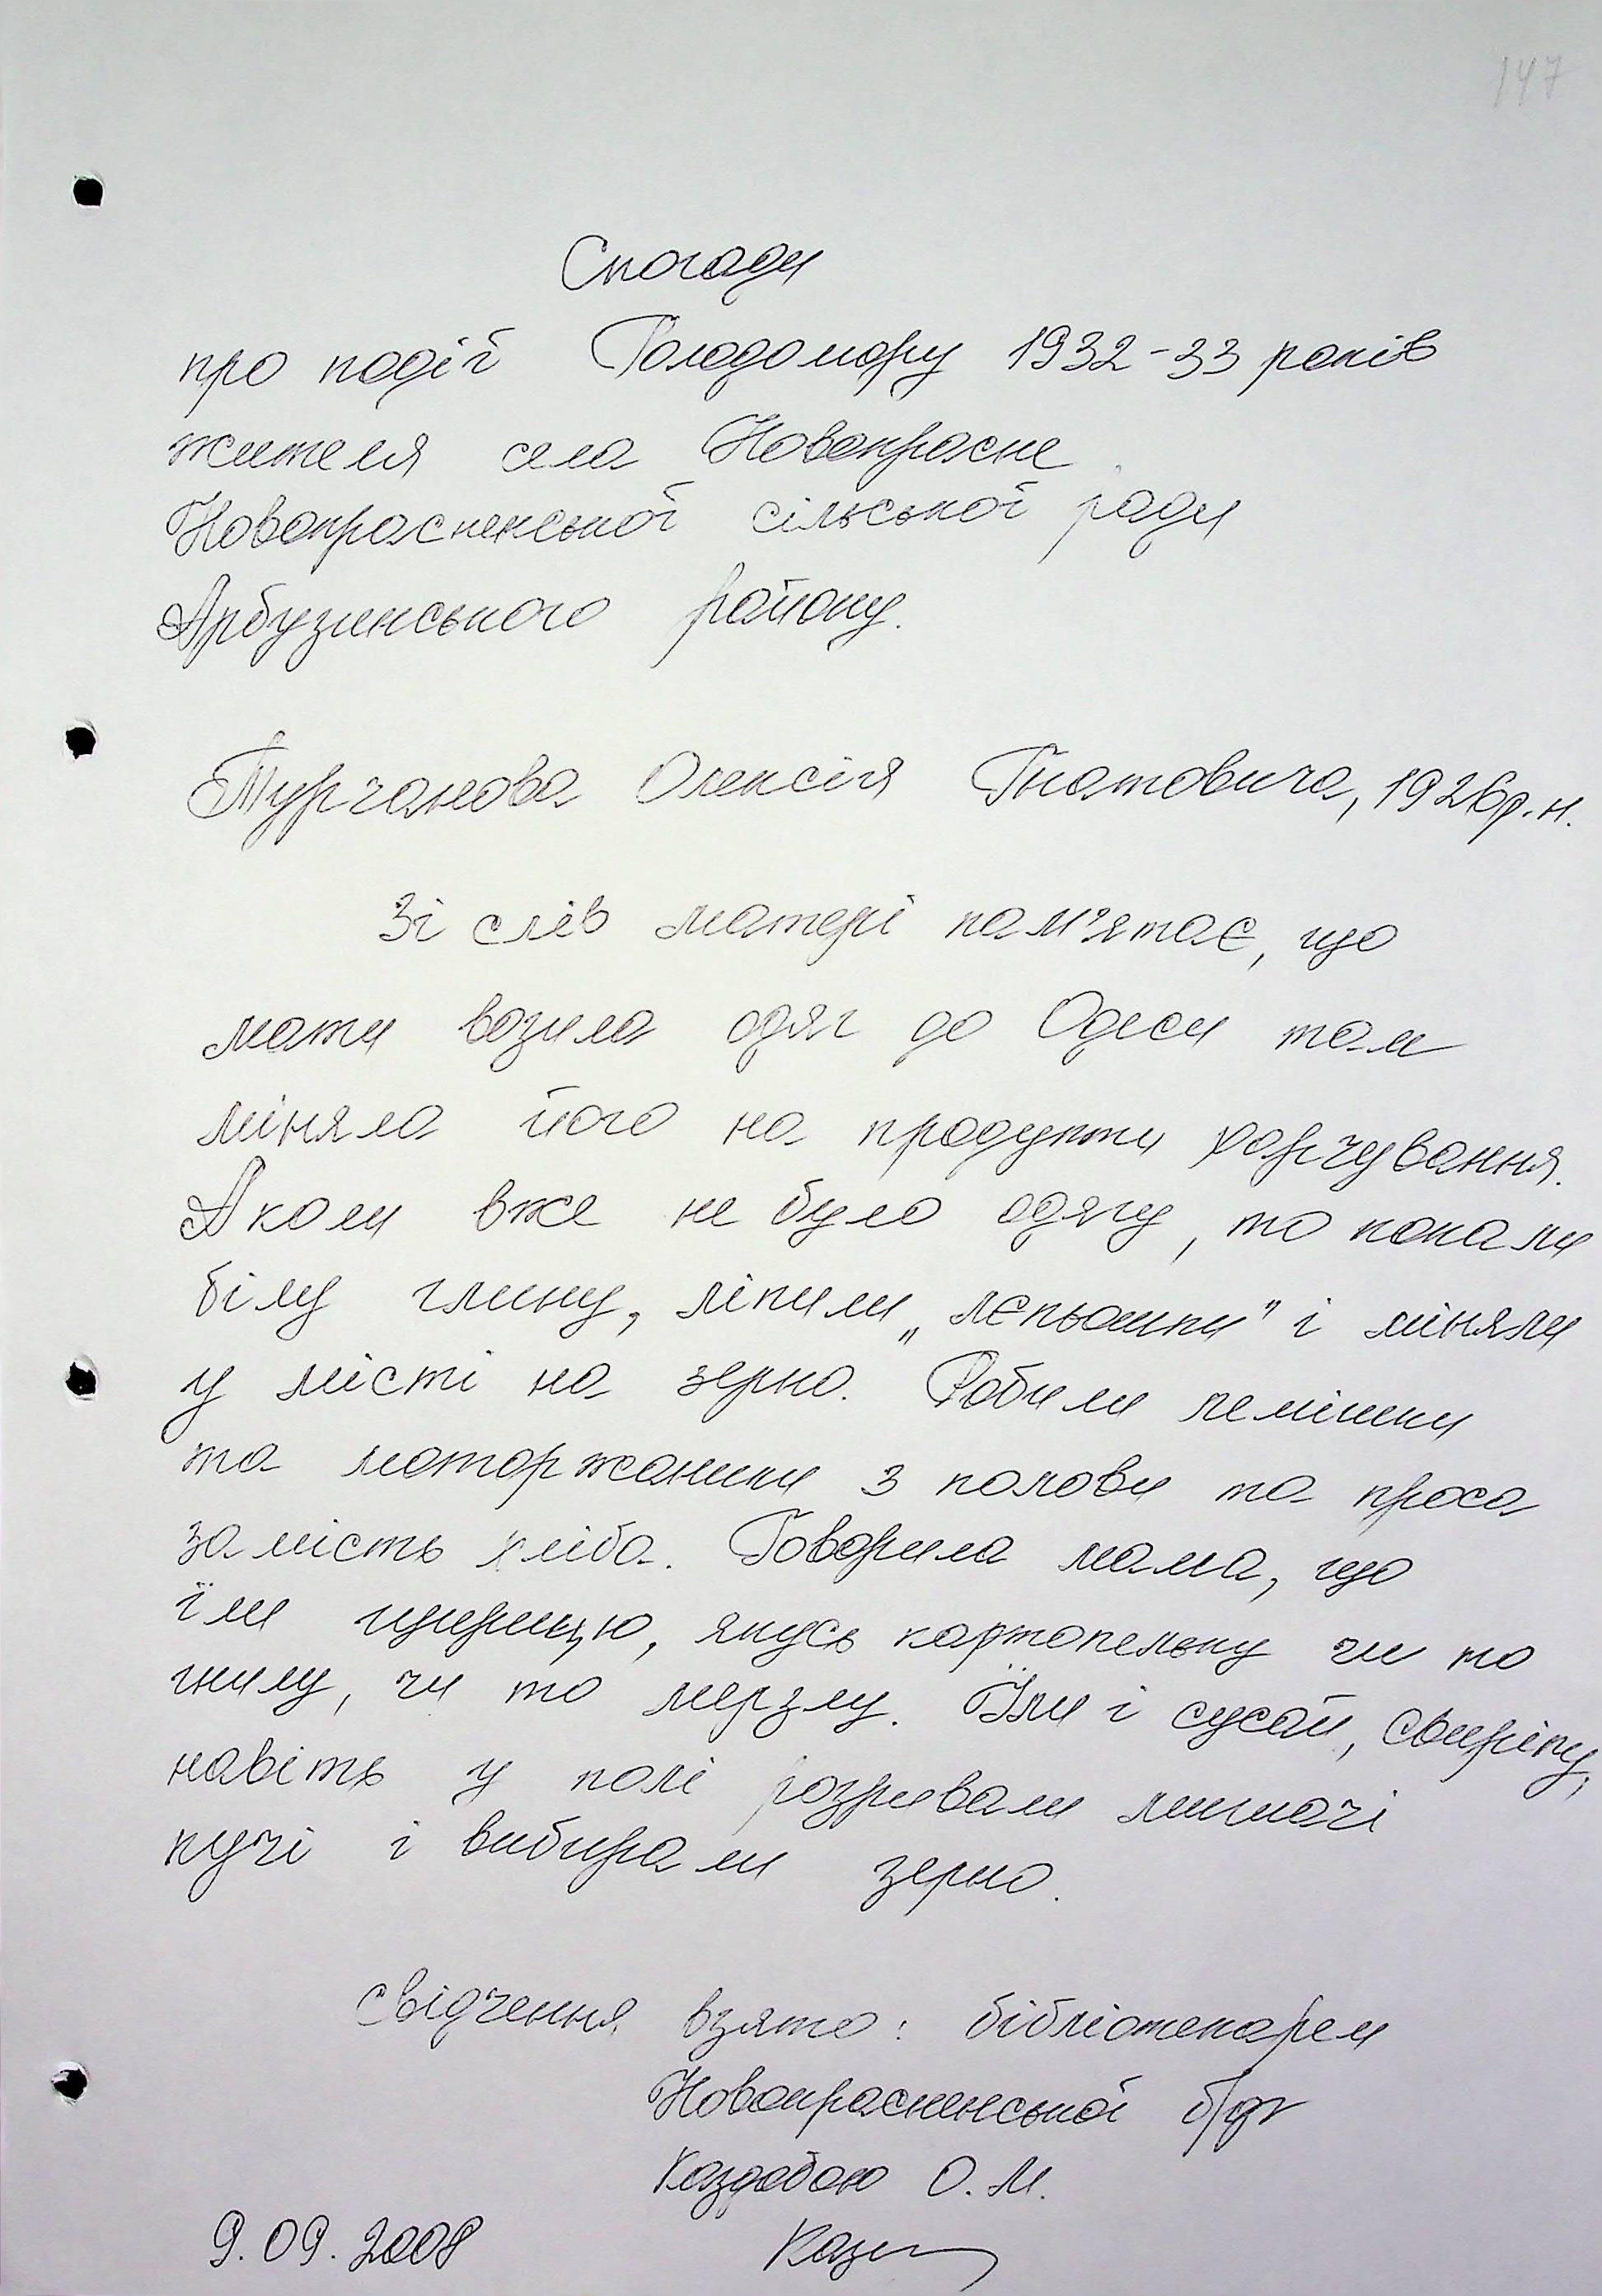 147
Спогади
про події Голодомору 1932-33 років
жителя села Новокрасне
Новокрасненської сільської ради
Арбузинського району.
Турчанова Олексія Гнатовича, 1926р.н.
Зі слів матері пам'ятає, що
мати возила одяг до Одеси там
міняла його на продукти харчування.
А коли вже не було одягу, то копали
білу глину, ліпили „лєпьошки" і міняли
у місті на зерно. Робили лемішки
та маторжаники з полови та проса
замість хліба. Говорила мама, що
їли щирицю, якусь картопельку чи то
гнилу, чи то мерзлу. Їли і сусай, свиріпу,
навіть у полі розривали мишачі
кучі і вибирали зерно.
Свідчення взято: бібліотекарем
Новокрасненської б/дт
Каздобою О. М.
9.09.2008